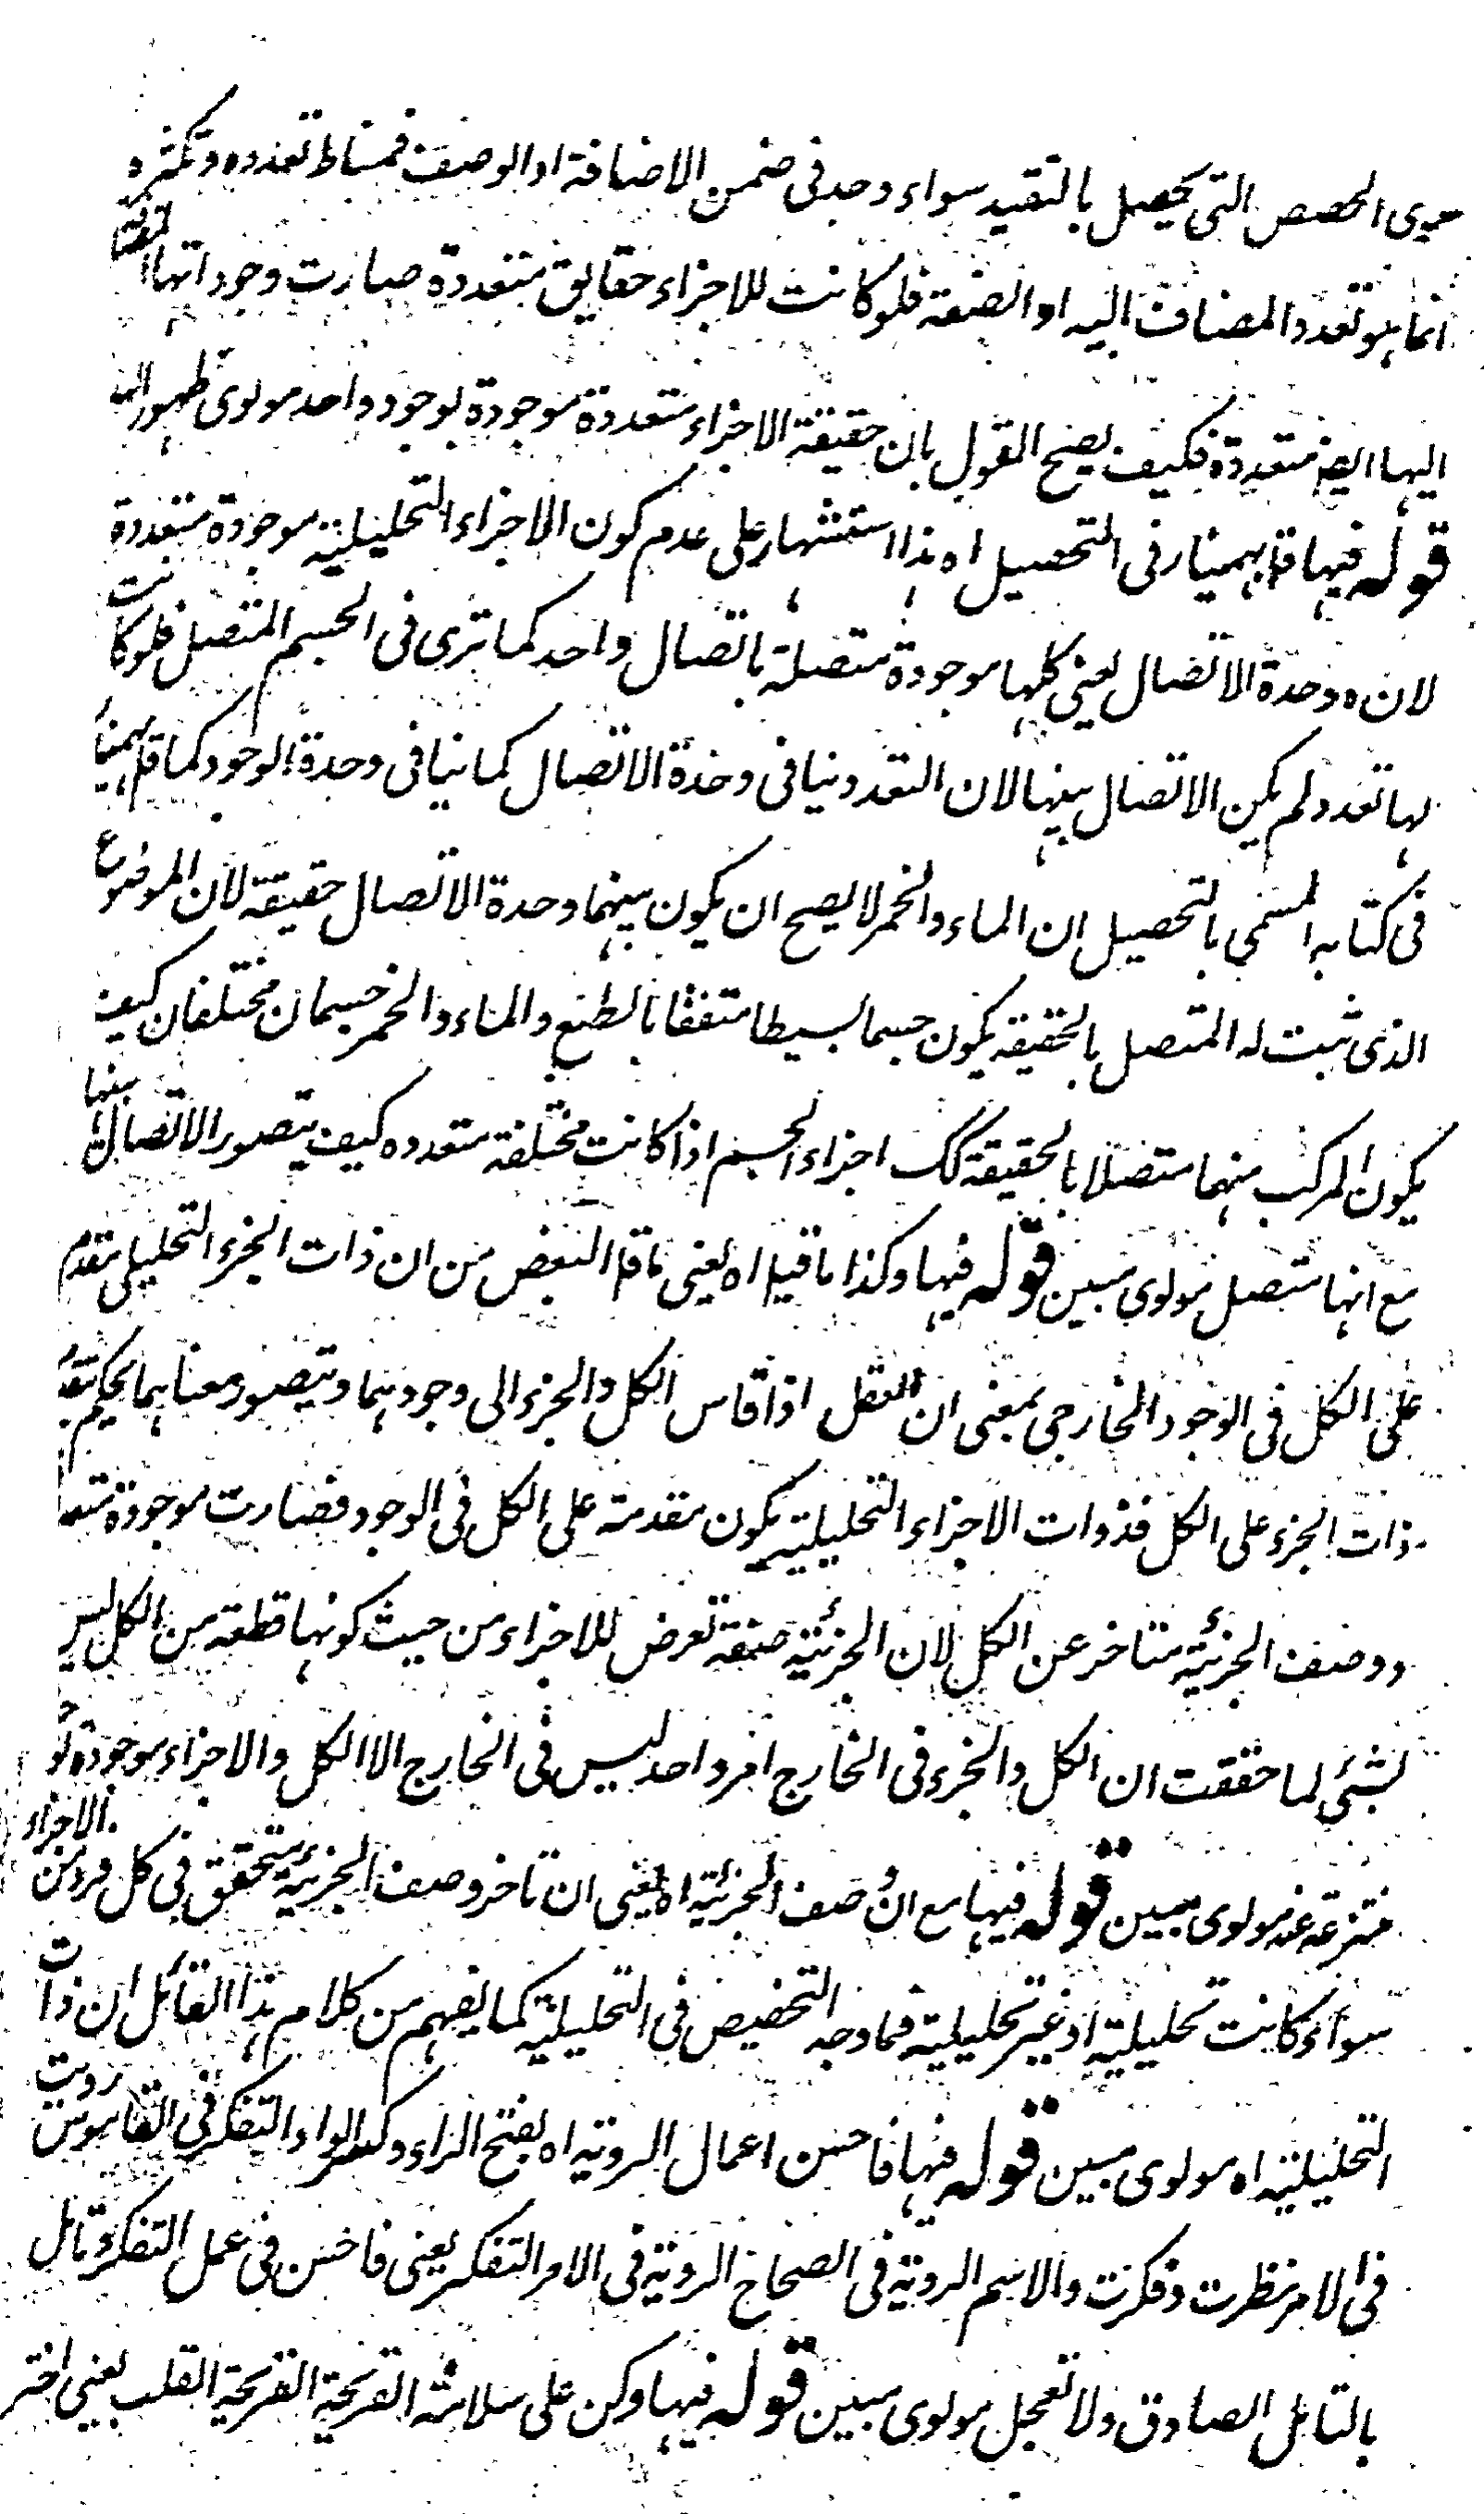 سوى الحصص التى تحصل بالتقييد سواء وجد فى ضمن الاضافة او الوصف فمناط تعدده وتكثره
انما هو تعدد المضاف اليه او الصفة فلو كانت للاجزاء حقايق متعددة صارت وجوداتها المضافة
اليها ايضا متعددة فكيف يصح القول بان حقيقة الاجزاء متعددة موجودة بوجود واحد مولوى ظهور الله
قوله فيها قال بهمنيار فى التحصيل اه هذا استشهار على عدم كون الاجزاء التحليلية موجودة متعددة
لان وحدة الاتصال يعنى كلها موجودة متصلة باتصال واحد كما ترى فى الجسم المتصل فلو كانت
لها تعدد لم يكن الاتصال بينها لان التعدد ينافى وحدة الاتصال كما ينافى وحدة الوجود كما قال بهمنيار
فى كتابه المسمى بالتحصيل ان الماء والخمر لا يصح ان يكون بينهما وحدة الاتصال حقيقة لان الموضوع
الذى ثبت له المتصل بالحقيقة يكون جسما بسيطا متفقا بالطبع والماء والخمر جسمان مختلفان كيف
يكون المركب منهما متصلا بالحقيقة كك اجزاء الجسم اذا كانت مختلفة متعدده كيف يتصور الاتصال بينها
مع انها متصل مولوى مبين قوله فيها وكذا ما قيل اه يعنى ما قال البعض من ان ذات الجزء التحليلى مقدم
على الكل فى الوجود الخارجى بمعنى ان العقل اذا قاس الكل والجزء الى وجودهما ويتصور معناهما يحكم بتقدم
ذات الجزء على الكل فذوات الاجزاء التحليلية يكون مقدمة على الكل فى الوجود فصارت موجودة
ووصف الجزئية متاخر عن الكل لان الجزئية صفة تعرض للاجزاء من حيث كونها قطعة من الكل ليس
بشئ لما حققت ان الكل والجزء فى الخارج امر واحد ليس فى الخارج الا الكل والاجزاء موجودة
منتزعة عنه مولوى مبين قوله فيها مع ان وصف الجزئية اه يعنى ان تاخر وصف الجزئية متحقق فى كل فرد من الاجزاء
سواء كانت تحليلية او غير تحليلية فما وجه التخصيص فى التحليلية كما يفهم من كلام هذا القائل ان ذات
التحليلية اه مولوى مبين قوله فيها فاحسن اعمال الروية اه بفتح الراء وكسر الواو التفكر فى القاموس رويت
فى الامر نظرت وفكرت والاسم الروية فى الصحاح الروية فى الامر التفكر يعنى فاحسن فى عمل التفكر وتامل
بالتامل الصادق ولا تعجل مولوى مبين قوله فيها وكن على سلامة القريحة القريحة القلب يعنى اختر